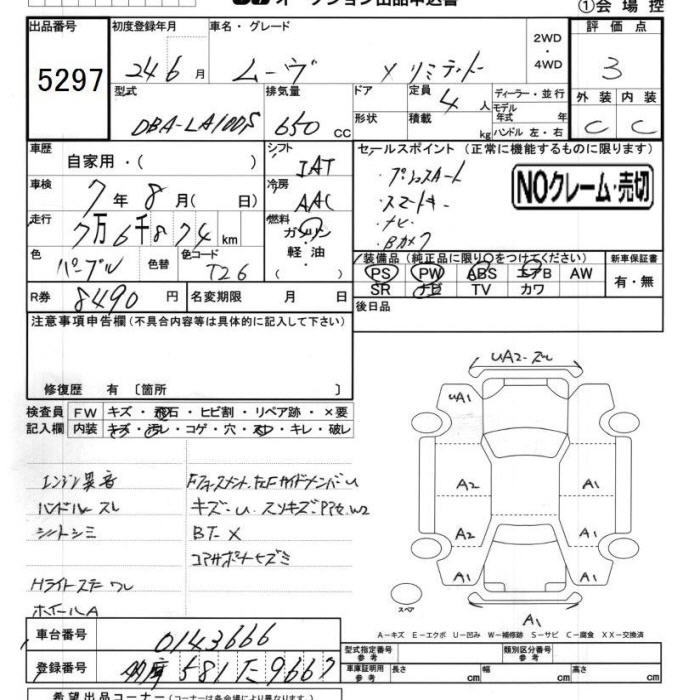 オークション出品申込書
①会場控
出品番号 初度登録年月 車名・グレード 2WD・4WD 評価点
5297 24 6月 ムーヴ X リミテッド 3
型式 排気量 ドア 定員 4人 ディーラー・並行 外装 内装
DBA-LA100S 650 CC 形状 積載 kg モデル年式 年 ハンドル 左・右 C C
車歴 自家用・( ) シフト IAT セールスポイント (正常に機能するものに限ります)
車検 7年8月( 日) 冷房 AAC ・プッシュスタート
・スマートキー
・ナビ
・Bカメラ
NOクレーム・売切
走行 7万6千874km 燃料 ガソリン・軽油 ( )
色 パープル 色替 色コード T26
装備品 (純正品に限り○をつけてください) 新車保証書
PS PW ABS エアB AW 有・無
SR ナビ TV カワ
R券 8490円 名変期限 月 日 後日品
注意事項申告欄 (不具合内容等は具体的に記入して下さい)
修復歴 有 〔箇所 〕
検査員 FW キズ・飛石・ヒビ割・リペア跡・×要
記入欄 内装 キズ・汚レ・コゲ・穴・スレ・キレ・破レ
エンジン異音
ハンドルスレ キズ・U
シートシミ BT-X
Hライトステー ワレ
ホイールA
UA2
UA1
A2 A1
A2 A1
A1 A1
A1
スペア
A－キズ E－エクボ U－凹み W－補修跡 S－サビ C－腐食 XX－交換済
車台番号 0143666
型式指定番号 参考 類別区分番号 参考
登録番号 581 た 9667
車庫証明用 参考 長さ cm 幅 cm 高さ cm
希望出品コーナー (コーナーは各会場により異なります。)